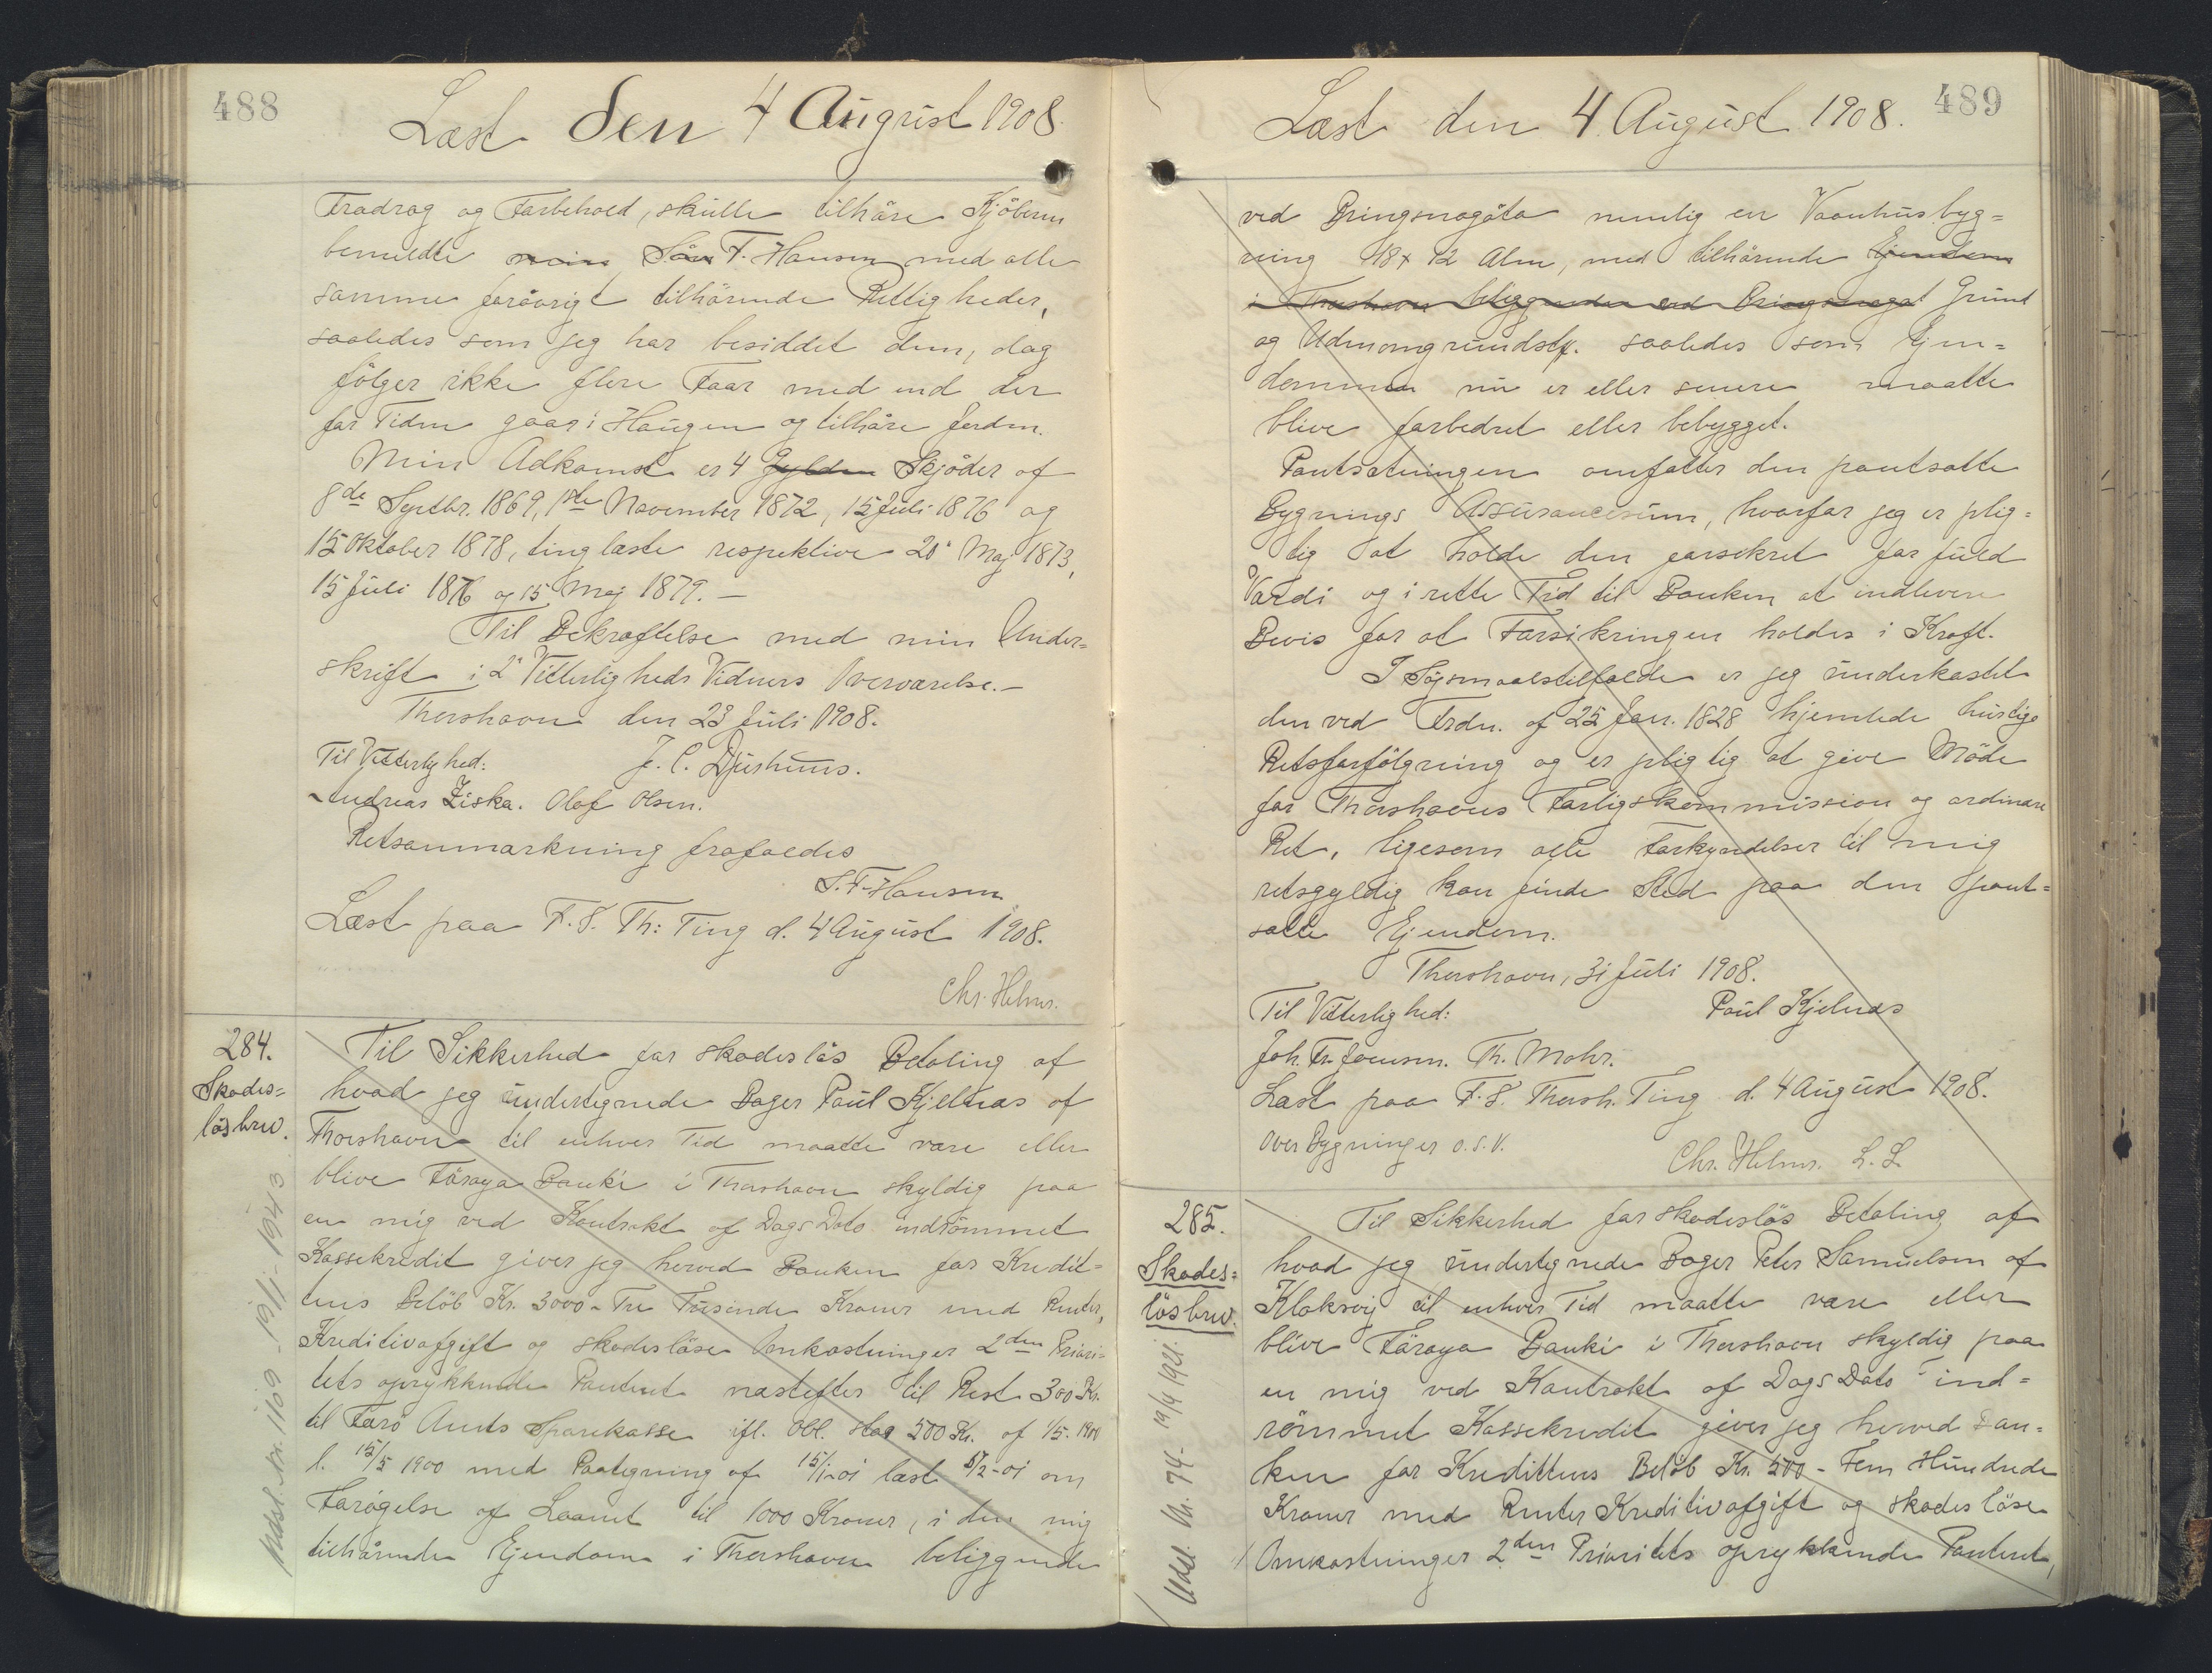 488
Læst den 4 August 1908
Fradrag og Forbehold, skulle tilhøre Kjøberen
bemeldte min Søn F. Hansen med alle
samme forøvrigt tilhørende Rettigheder,
saaledes som jeg har besiddet dem, dog
følger ikke flere Faar med end der
for Tiden gaar i Haugen og tilhøre Jorden.
Min Adkomst er 4 Gylden Skjøder af
8de Septbr. 1869, 1ste November 1872, 15 Juli 1876 og
15 Oktober 1878, tinglæste respektive 20' Maj 1873,
15 Juli 1876 og 15 Maj 1879. —
Til Bekræftelse med min Under=
skrift i 2' Vitterligheds Vidners Overværelse. —
Thorshavn den 23 Juli 1908.
Til Vitterlighed: J. C. Djurhuus.
Andreas Ziska. Olof Olsen.
Retsanmærkning frafaldes
S. F. Hansen
Læst paa F. S. Th: Ting d. 4 August 1908.
Chr. Helms.
284.
Skades=
løsbrev.
Til Sikkerhed for skadesløs Betaling af
hvad jeg undertegnede Bager Paul Kjelnæs af
Thorshavn til enhver Tid maatte være eller
blive Føroya Banki i Thorshavn skyldig paa
en mig ved Kontrakt af Dags Dato indrømmet
Kassekredit giver jeg herved Banken for Kredit=
tens Beløb Kr. 3000 - Tre Tusinde Kroner med Renter,
Kreditivafgift og skadesløse Omkostninger 2den Priori=
tets oprykkende Panteret næstefter til Rest 300 Kr.
til Færø Amts Sparekasse ifl. Obl. stor 500 Kr. af 1/5. 1900
l. 15/5 1900 med Paategning af 15/1-01 læst 5/2-01 om
Forøgelse af Laanet til 1000 Kroner, i den mig
tilhørende Ejendom i Thorshavn beliggende
Udsl. Nr. 1109 - 19/1-1943
489
Læst den 4 August 1908.
ved Bringsnagøta nemlig en Vaanhusbyg=
ning 18 x 12 Alen, med tilhørende Ejendom
i Thorshavn beliggende ved Bringsnagøt Grund
og Udenomgrundstk. saaledes som Ejen=
dommen nu er eller senere maatte
blive forbedret eller bebygget.
Pantsætningen omfatter den pantsatte
Bygnings Assurancesum, hvorfor jeg er plig=
tig at holde den forsikret for fuld
Værdi og i rette Tid til Banken at indlevere
Bevis for at Forsikringen holdes i Kraft.
I Søgsmaalstilfælde er jeg underkastet
den ved Frdn. af 25 Jan. 1828 hjemlede hurtige
Retsforfølgning og er pligtig at give Møde
for Thorshavns Forligskommission og ordinære
Ret, ligesom alle Forkyndelser til mig
retsgyldig kan finde Sted paa den pant=
satte Ejendom.
Thorshavn, 31 Juli 1908.
Til Vitterlighed: Paul Kjelnæs
Joh. Fr. Joensen. Th. Mohr.
Læst paa F. S. Thorsh. Ting d. 4 August 1908.
Over Bygninger o.s.v.
Chr. Helms. L. S.
285.
Skades=
løsbrev.
Til Sikkerhed for skadesløs Betaling af
hvad jeg undertegnede Bager Peter Samuelsen af
Klaksvig til enhver Tid maatte være eller
blive Føroya Banki i Thorshavn skyldig paa
en mig ved Kontrakt af Dags Dato ind=
rømmet Kassekredit giver jeg herved Ban=
ken for Kredittens Beløb Kr. 500 - Fem Hundrede
Kroner med Renter Kreditivafgift og skadesløse
Omkostninger 2den Prioritets oprykkende Panteret,
Udsl. Nr. 74 - 19/4 1921